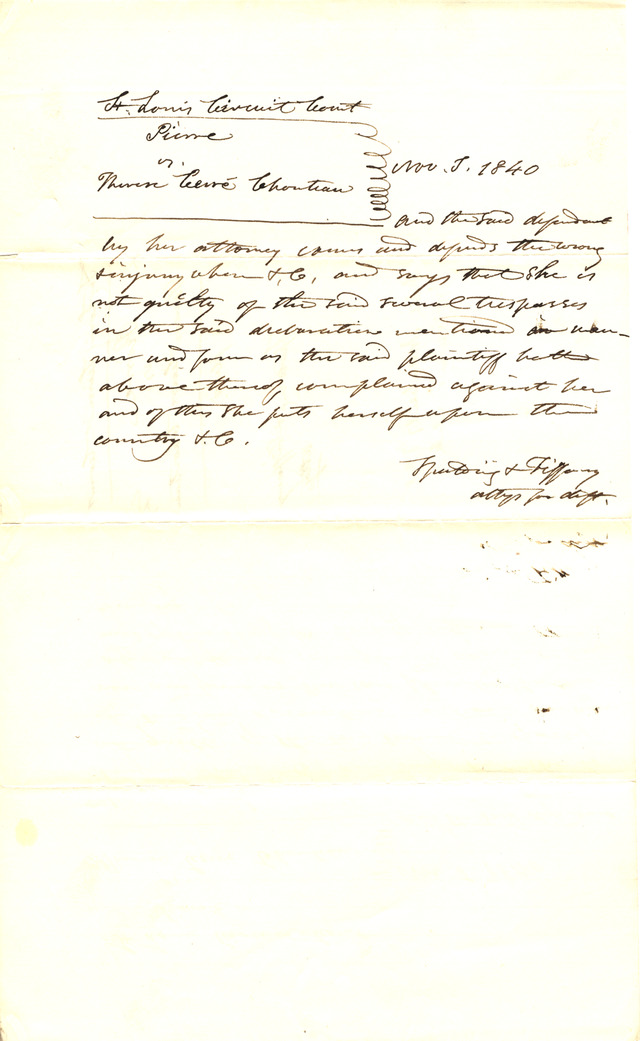 St. Louis Circuit Court
Pierre
vs.
Therese Cerré Chouteau
Nov. T. 1840
and the said defendant
by her attorney comes and defends the wrong
& injury when &.C, and says that she is
not guilty of the said several trespasses
in the said declaration mentioned in man-
ner and form as the said plaintiff hath
above thereof complained against her
and of this she puts herself upon the
country &.C.
Spalding & Tiffany
attys for deft.